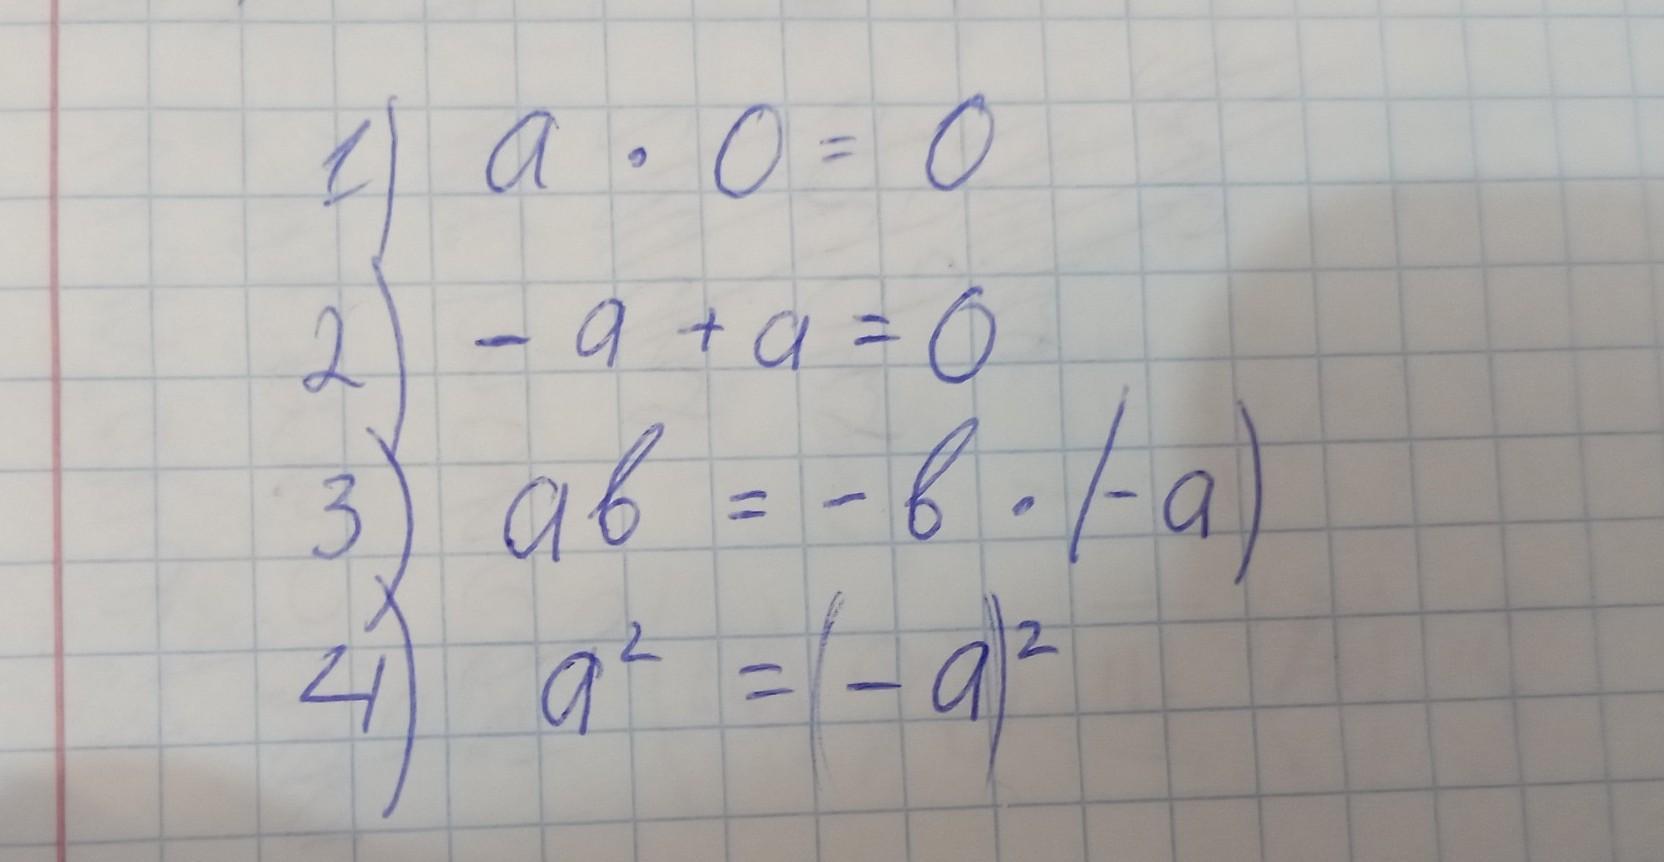 1) a · 0 = 0
2) - a + a = 0
3) ав = - в · (- a)
4) a² = (- a)²